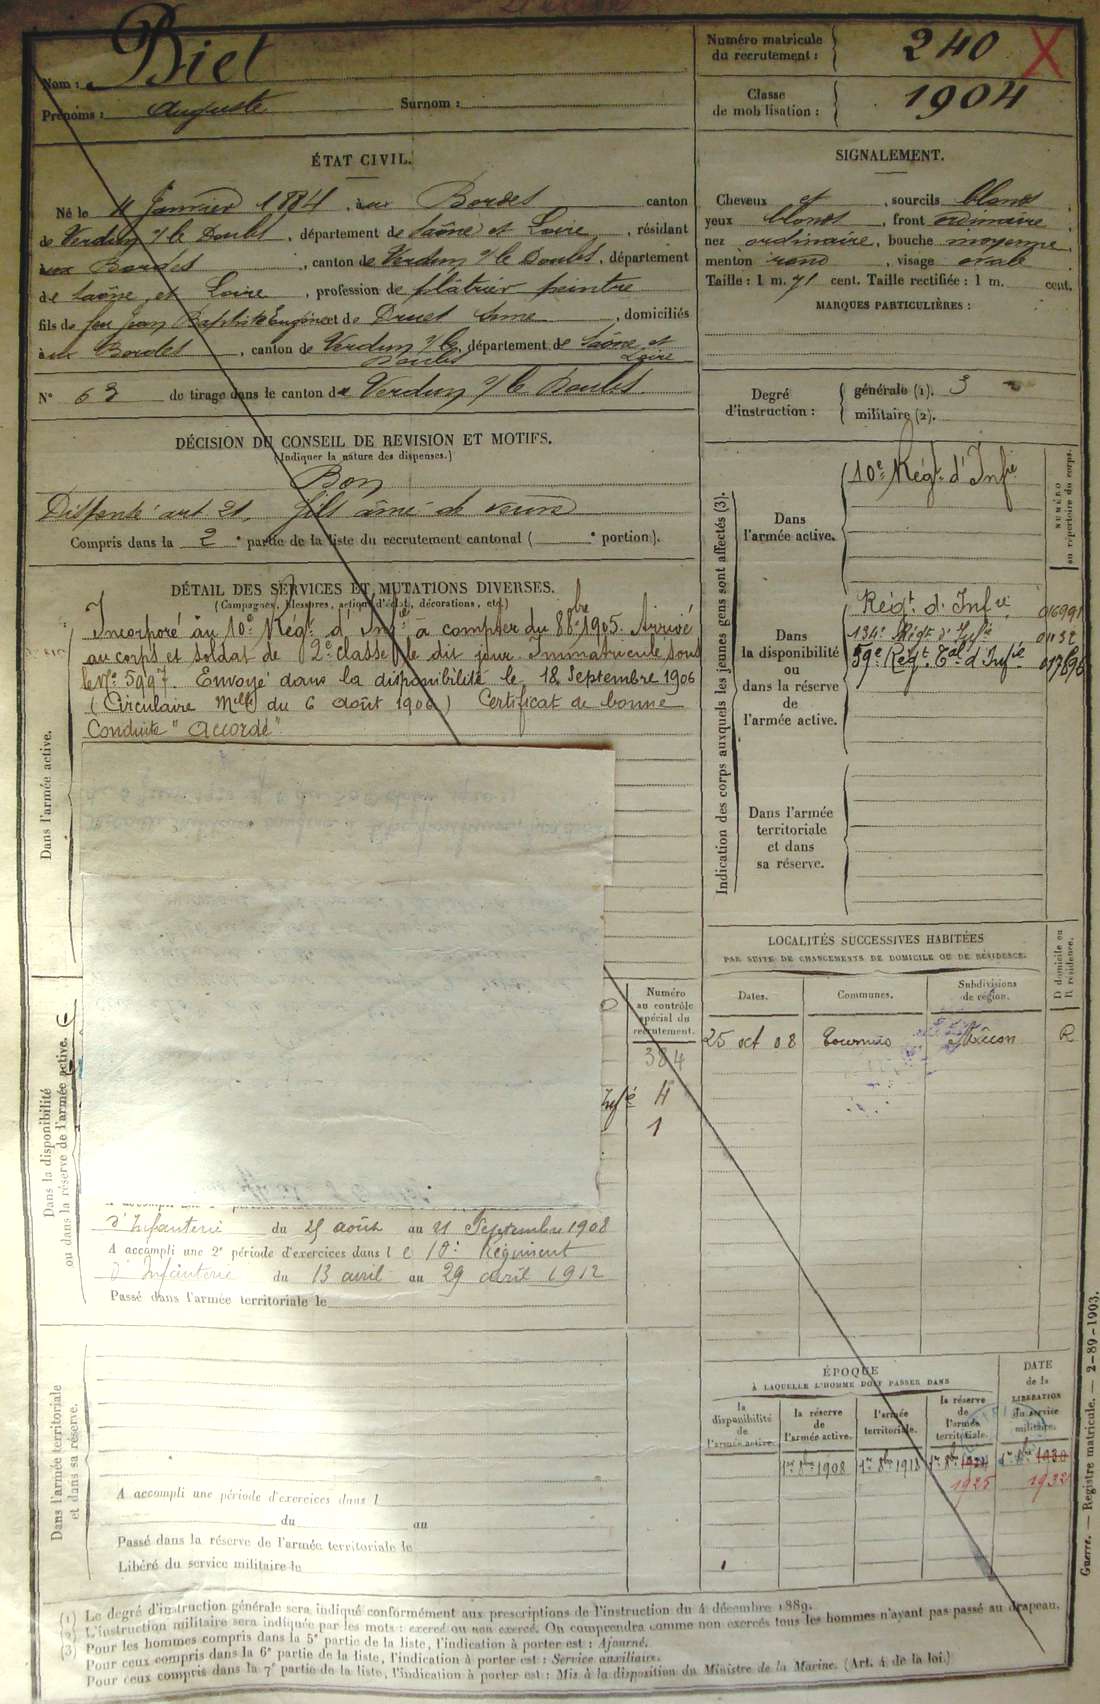 Nom : Biet
Prénoms : Auguste Surnom :
Numéro matricule
du recrutement : 240 X
Classe
de mobilisation : 1904
ÉTAT CIVIL.
Né le 4 Janvier 1884, à aux Bordes canton
de Verdun s/ le Doubs, département de Saône et Loire, résidant
aux Bordes, canton de Verdun s/ le Doubs, département
de Saône et Loire, profession de plâtrier peintre
fils de feu Jean Baptiste Eugène et de Druet Anne, domiciliés
à aux Bordes, canton de Verdun s/ le Doubs, département de Saône et Loire
N° 63 de tirage dans le canton de Verdun s/ le Doubs
SIGNALEMENT.
Cheveux et, sourcils blonds,
yeux blonds, front ordinaire,
nez ordinaire, bouche moyenne,
menton rond, visage ovale
Taille : 1 m. 71 cent. Taille rectifiée : 1 m. cent.
MARQUES PARTICULIÈRES :
Degré
d'instruction :
générale (1). 3
militaire (2).
DÉCISION DU CONSEIL DE REVISION ET MOTIFS.
(Indiquer la nature des dispenses.)
Bon
Dispensé art 21. fils aîné de veuve
Compris dans la 2e partie de la liste du recrutement cantonal ( e portion).
DÉTAIL DES SERVICES ET MUTATIONS DIVERSES.
(Campagnes, blessures, actions d'éclat, décorations, etc.)
Dans l'armée active.
Incorporé au 10e Régt d'Infie à compter du 8 8bre 1905. Arrivé
au corps et soldat de 2e classe le dit jour. Immatriculé sous
le No 5997. Envoyé dans la disponibilité le 18 Septembre 1906
(Circulaire Mlle du 6 Août 1906) Certificat de bonne
Conduite "Accordé"
Indication des corps auxquels les jeunes gens sont affectés (3).
NUMÉRO
au répertoire du corps.
Dans
l'armée active.
10e Régt d'Infie
Dans
la disponibilité
ou
dans la réserve
de
l'armée active.
Régt d'Infie 016991
134e Régt d'Infie 01132
59e Régt Tal d'Infie 017696
Dans l'armée
territoriale
et dans
sa réserve.
LOCALITÉS SUCCESSIVES HABITÉES
PAR SUITE DE CHANGEMENTS DE DOMICILE OU DE RÉSIDENCE.
Dates. Communes. Subdivisions de région. D domicile ou R résidence.
25 oct 08 Tournus Mâcon R
Dans la disponibilité
ou dans la réserve de l'armée active.
Numéro
au contrôle
spécial du
recrutement.
384
Infie 4
1
d'Infanterie du 25 août au 21 Septembre 1908
A accompli une 2e période d'exercices dans le 10e Régiment
d'Infanterie du 13 avril au 29 avril 1912
Passé dans l'armée territoriale le
Dans l'armée territoriale
et dans sa réserve.
A accompli une période d'exercices dans l
du au
Passé dans la réserve de l'armée territoriale le
Libéré du service militaire le
ÉPOQUE
À LAQUELLE L'HOMME DOIT PASSER DANS
la disponibilité de l'armée active.
la réserve de l'armée active.
l'armée territoriale.
la réserve de l'armée territoriale.
DATE de la LIBÉRATION du service militaire.
1er 8bre 1908 1er 8bre 1918 1er 8bre 1924 1er 8bre 1930
1925 1932
(1) Le degré d'instruction générale sera indiqué conformément aux prescriptions de l'instruction du 4 décembre 1889.
(2) L'instruction militaire sera indiquée par les mots : exercé ou non exercé. On comprendra comme non exercés tous les hommes n'ayant pas passé au drapeau.
(3) Pour les hommes compris dans la 5e partie de la liste, l'indication à porter est : Ajourné.
Pour ceux compris dans la 6e partie de la liste, l'indication à porter est : Service auxiliaire.
Pour ceux compris dans la 7e partie de la liste, l'indication à porter est : Mis à la disposition du Ministre de la Marine. (Art. 4 de la loi.)
Guerre. — Registre matricule. — 2-89-1903.